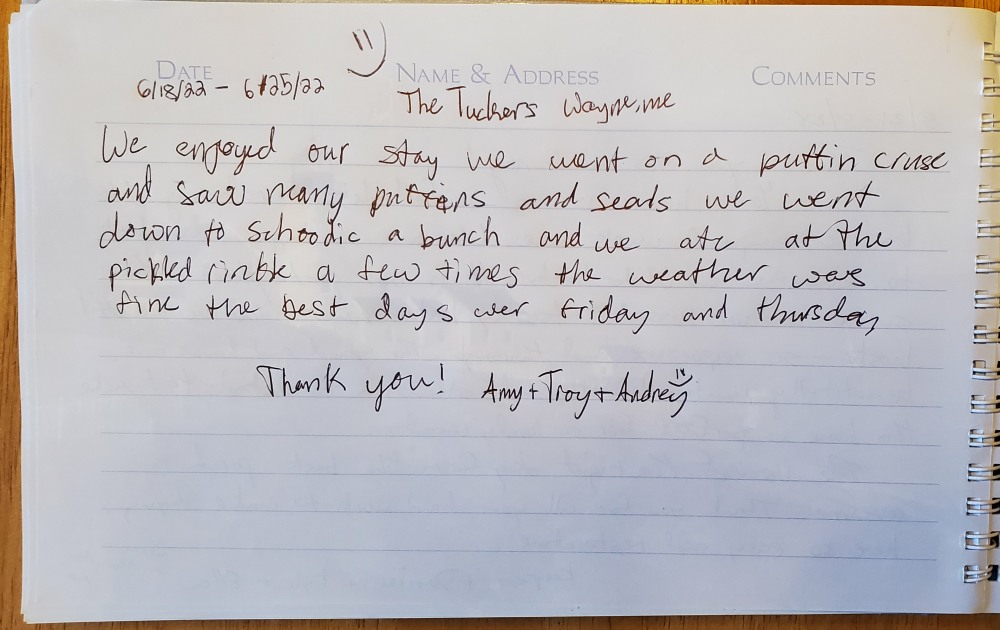 DATE NAME & ADDRESS COMMENTS
6/18/22 - 6/25/22
The Tuckers Wayne, me
We enjoyed our stay we went on a puffin cruse
and saw many puffins and seals we went
down to Schoodic a bunch and we ate at the
pickled rinkle a few times the weather was
fine the best days wer friday and thursday
Thank you! Amy + Troy + Andrey